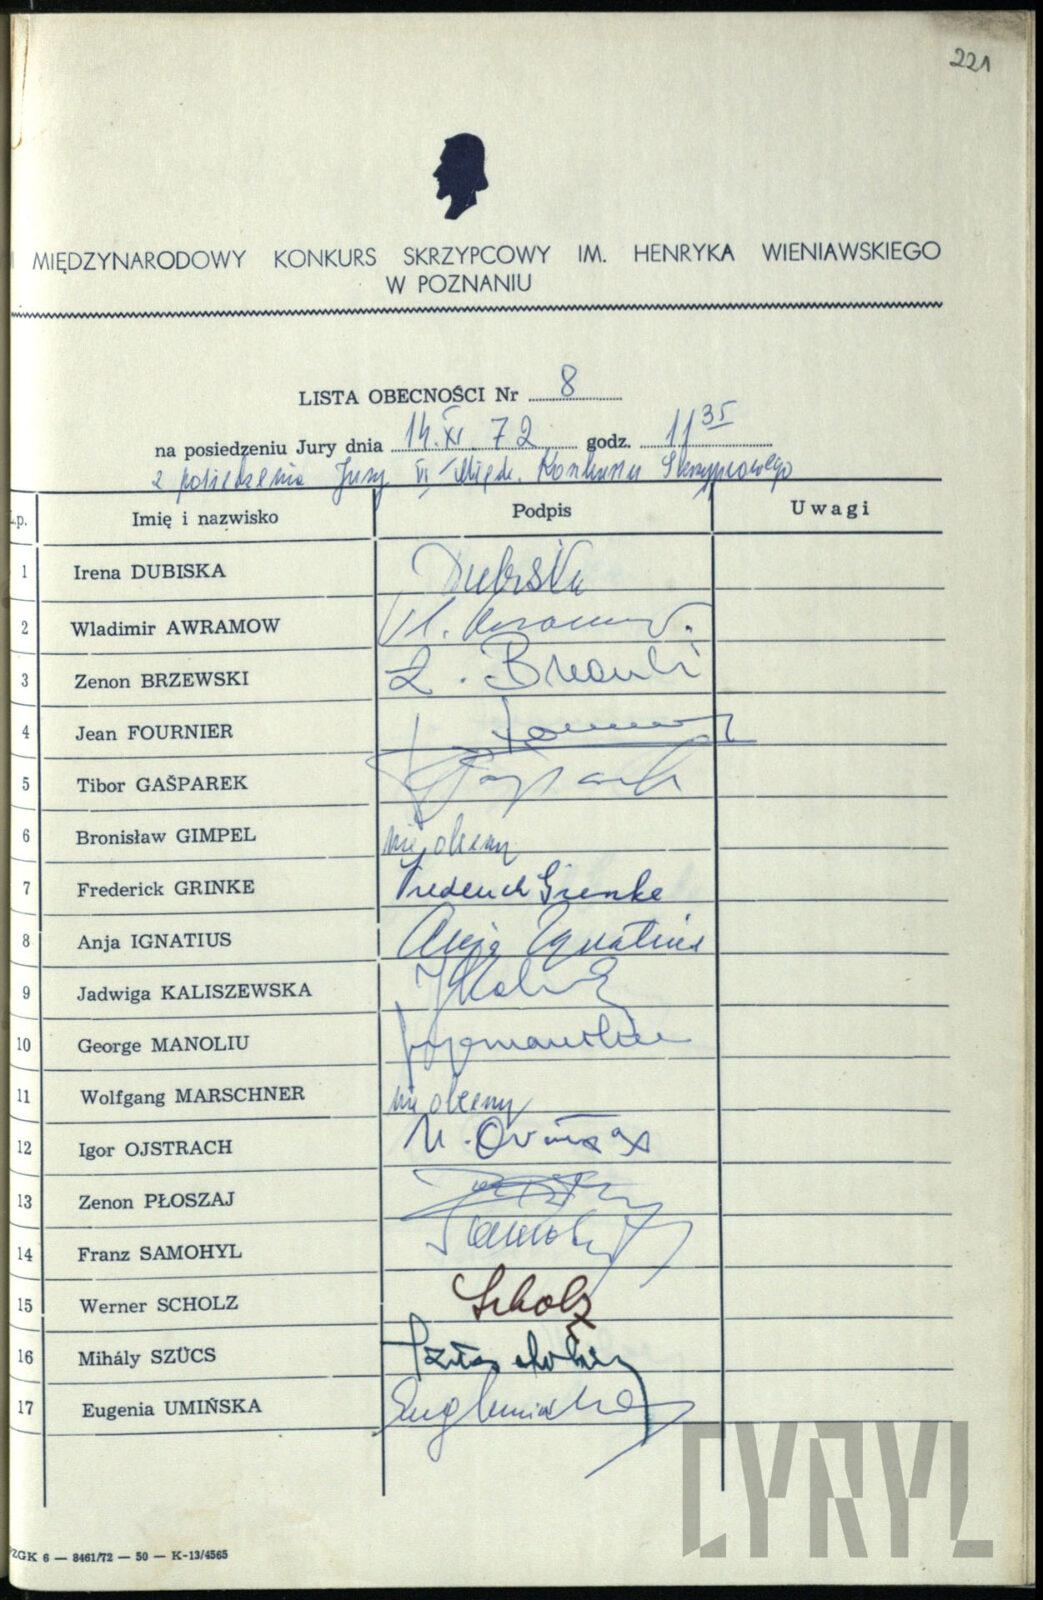 221
MIĘDZYNARODOWY KONKURS SKRZYPCOWY IM. HENRYKA WIENIAWSKIEGO
W POZNANIU
LISTA OBECNOŚCI Nr 8
na posiedzeniu Jury dnia 14. XI. 72 godz. 11 35
z posiedzenia Jury VI Międz. Konkursu Skrzypcowego
Lp. Imię i nazwisko Podpis Uwagi
1 Irena DUBISKA Dubiska
2 Wladimir AWRAMOW
3 Zenon BRZEWSKI
4 Jean FOURNIER
5 Tibor GAŠPAREK
6 Bronisław GIMPEL nie obecny
7 Frederick GRINKE Frederick Grinke
8 Anja IGNATIUS Anja Ignatius
9 Jadwiga KALISZEWSKA
10 George MANOLIU
11 Wolfgang MARSCHNER nie obecny
12 Igor OJSTRACH
13 Zenon PŁOSZAJ
14 Franz SAMOHYL
15 Werner SCHOLZ Scholz
16 Mihály SZÜCS
17 Eugenia UMIŃSKA
ZGK 6 — 8461/72 — 50 — K-13/4565
CYRYL